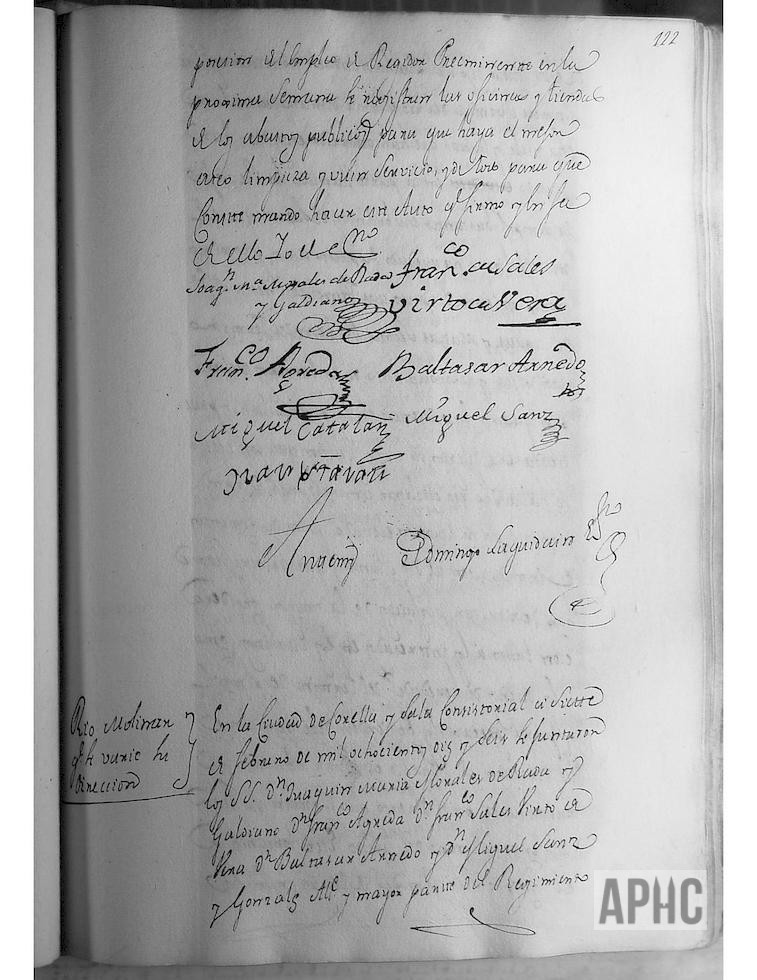 122
posesion el Empleo de Regidor Preeminente en la
proxima Semana se registren las oficinas y tiendas
de los abastos publicos para que haya el mejor
aseo limpieza y buen Servicio, y de todo para que
Conste mando hacer este Auto q.e firmo y en fee
de ello Yo el es.no
Joaq.n M.a Morales de Rada
y Galdiano
Fran.co de Sales
Virto de Vera
Fran.co Agreda
Baltasar Arnedo
Miguel Catalan
Miguel Sanz
Juan
Antemi
Domingo Laquidain Es.no
Rio Molinar
q.e se varie su
Direccion
En la Ciudad de Corella y Sala Consistorial a Siette
de febrero de mil ochocientos diez y seis se juntaron
los SS. D.n Juaquin Maria Morales de Rada y
Galdiano D.n Fran.co Agreda D.n Fran.co Sales Virto de
Vera D.n Baltasar Arnedo y D.n Miguel Sanz
y Gonzalz Alc.e y mayor parte del Regimiento
APHC